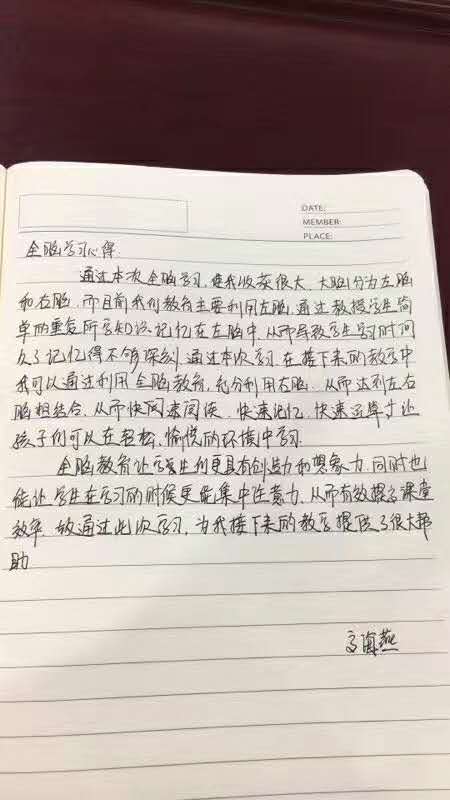 DATE:
MEMBER:
PLACE:
全脑学习心得
通过本次全脑学习,使我收获很大,大脑分为左脑
和右脑,而目前我们教育主要利用左脑,通过教授学生简
单的重复所学知识记忆在左脑中,从而导致学生学习时间
久了记忆得不够深刻,通过本次学习,在接下来的教学中
我可以通过利用全脑教育,充分利用右脑,从而达到左右
脑相结合,从而快阅来阅读,快速记忆,快速运算等让
孩子们可以在轻松、愉悦的环境中学习.
全脑教育让学生们更具有创造力和想象力,同时也
能让学生在学习的时候更能集中注意力,从而有效提高课堂
效率,故通过此次学习,为我接下来的教学提供了很大帮
助
高海燕